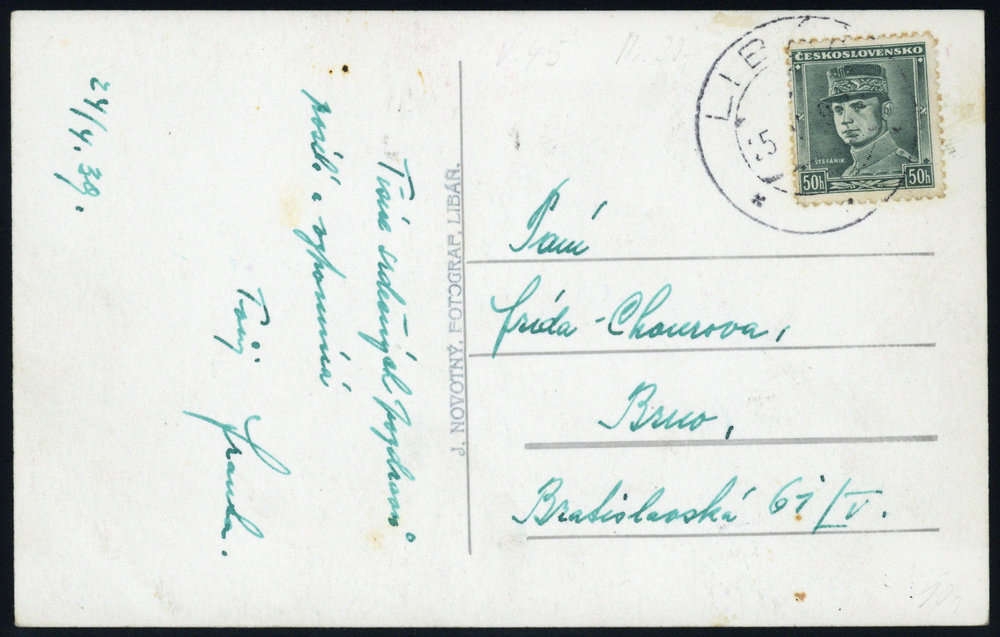 24/4.38.
Tisíce srdečných pozdravů
posílá a vzpomíná
Tvůj Franda.
J. NOVOTNÝ, FOTOGRAF, LIBÁŇ.
LIB
5
ČESKOSLOVENSKO
ŠTEFÁNIK
50h 50h
Paní
Frída Chourova,
Brno,
Bratislavská 61/IV.